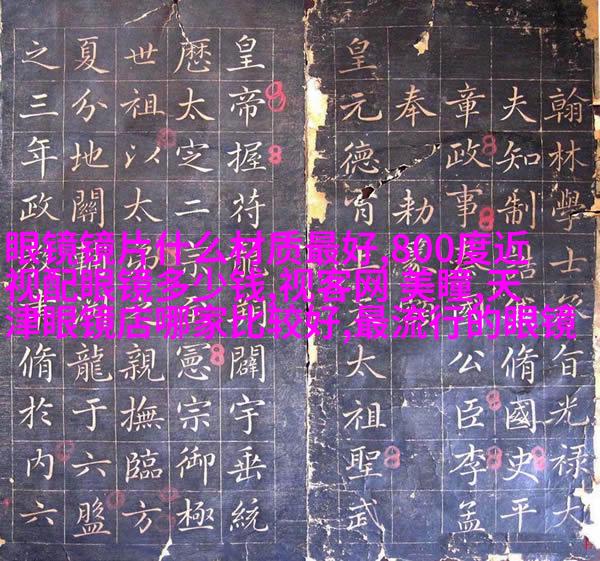 眼镜镜片什么材质最好,800度近
视配眼镜多少钱,视客网 美瞳,天
津眼镜店哪家比较好,最流行的眼镜
翰林學士旨光祿大
夫知制脩國史平
章政事公臣李孟
奉勅
皇元德胄太祖聖武
皇帝握符闢宇垂統
厯太定二憲宗御極
世祖以太親撫臨方
夏分地關龍于六盤
之三年政脩於内六